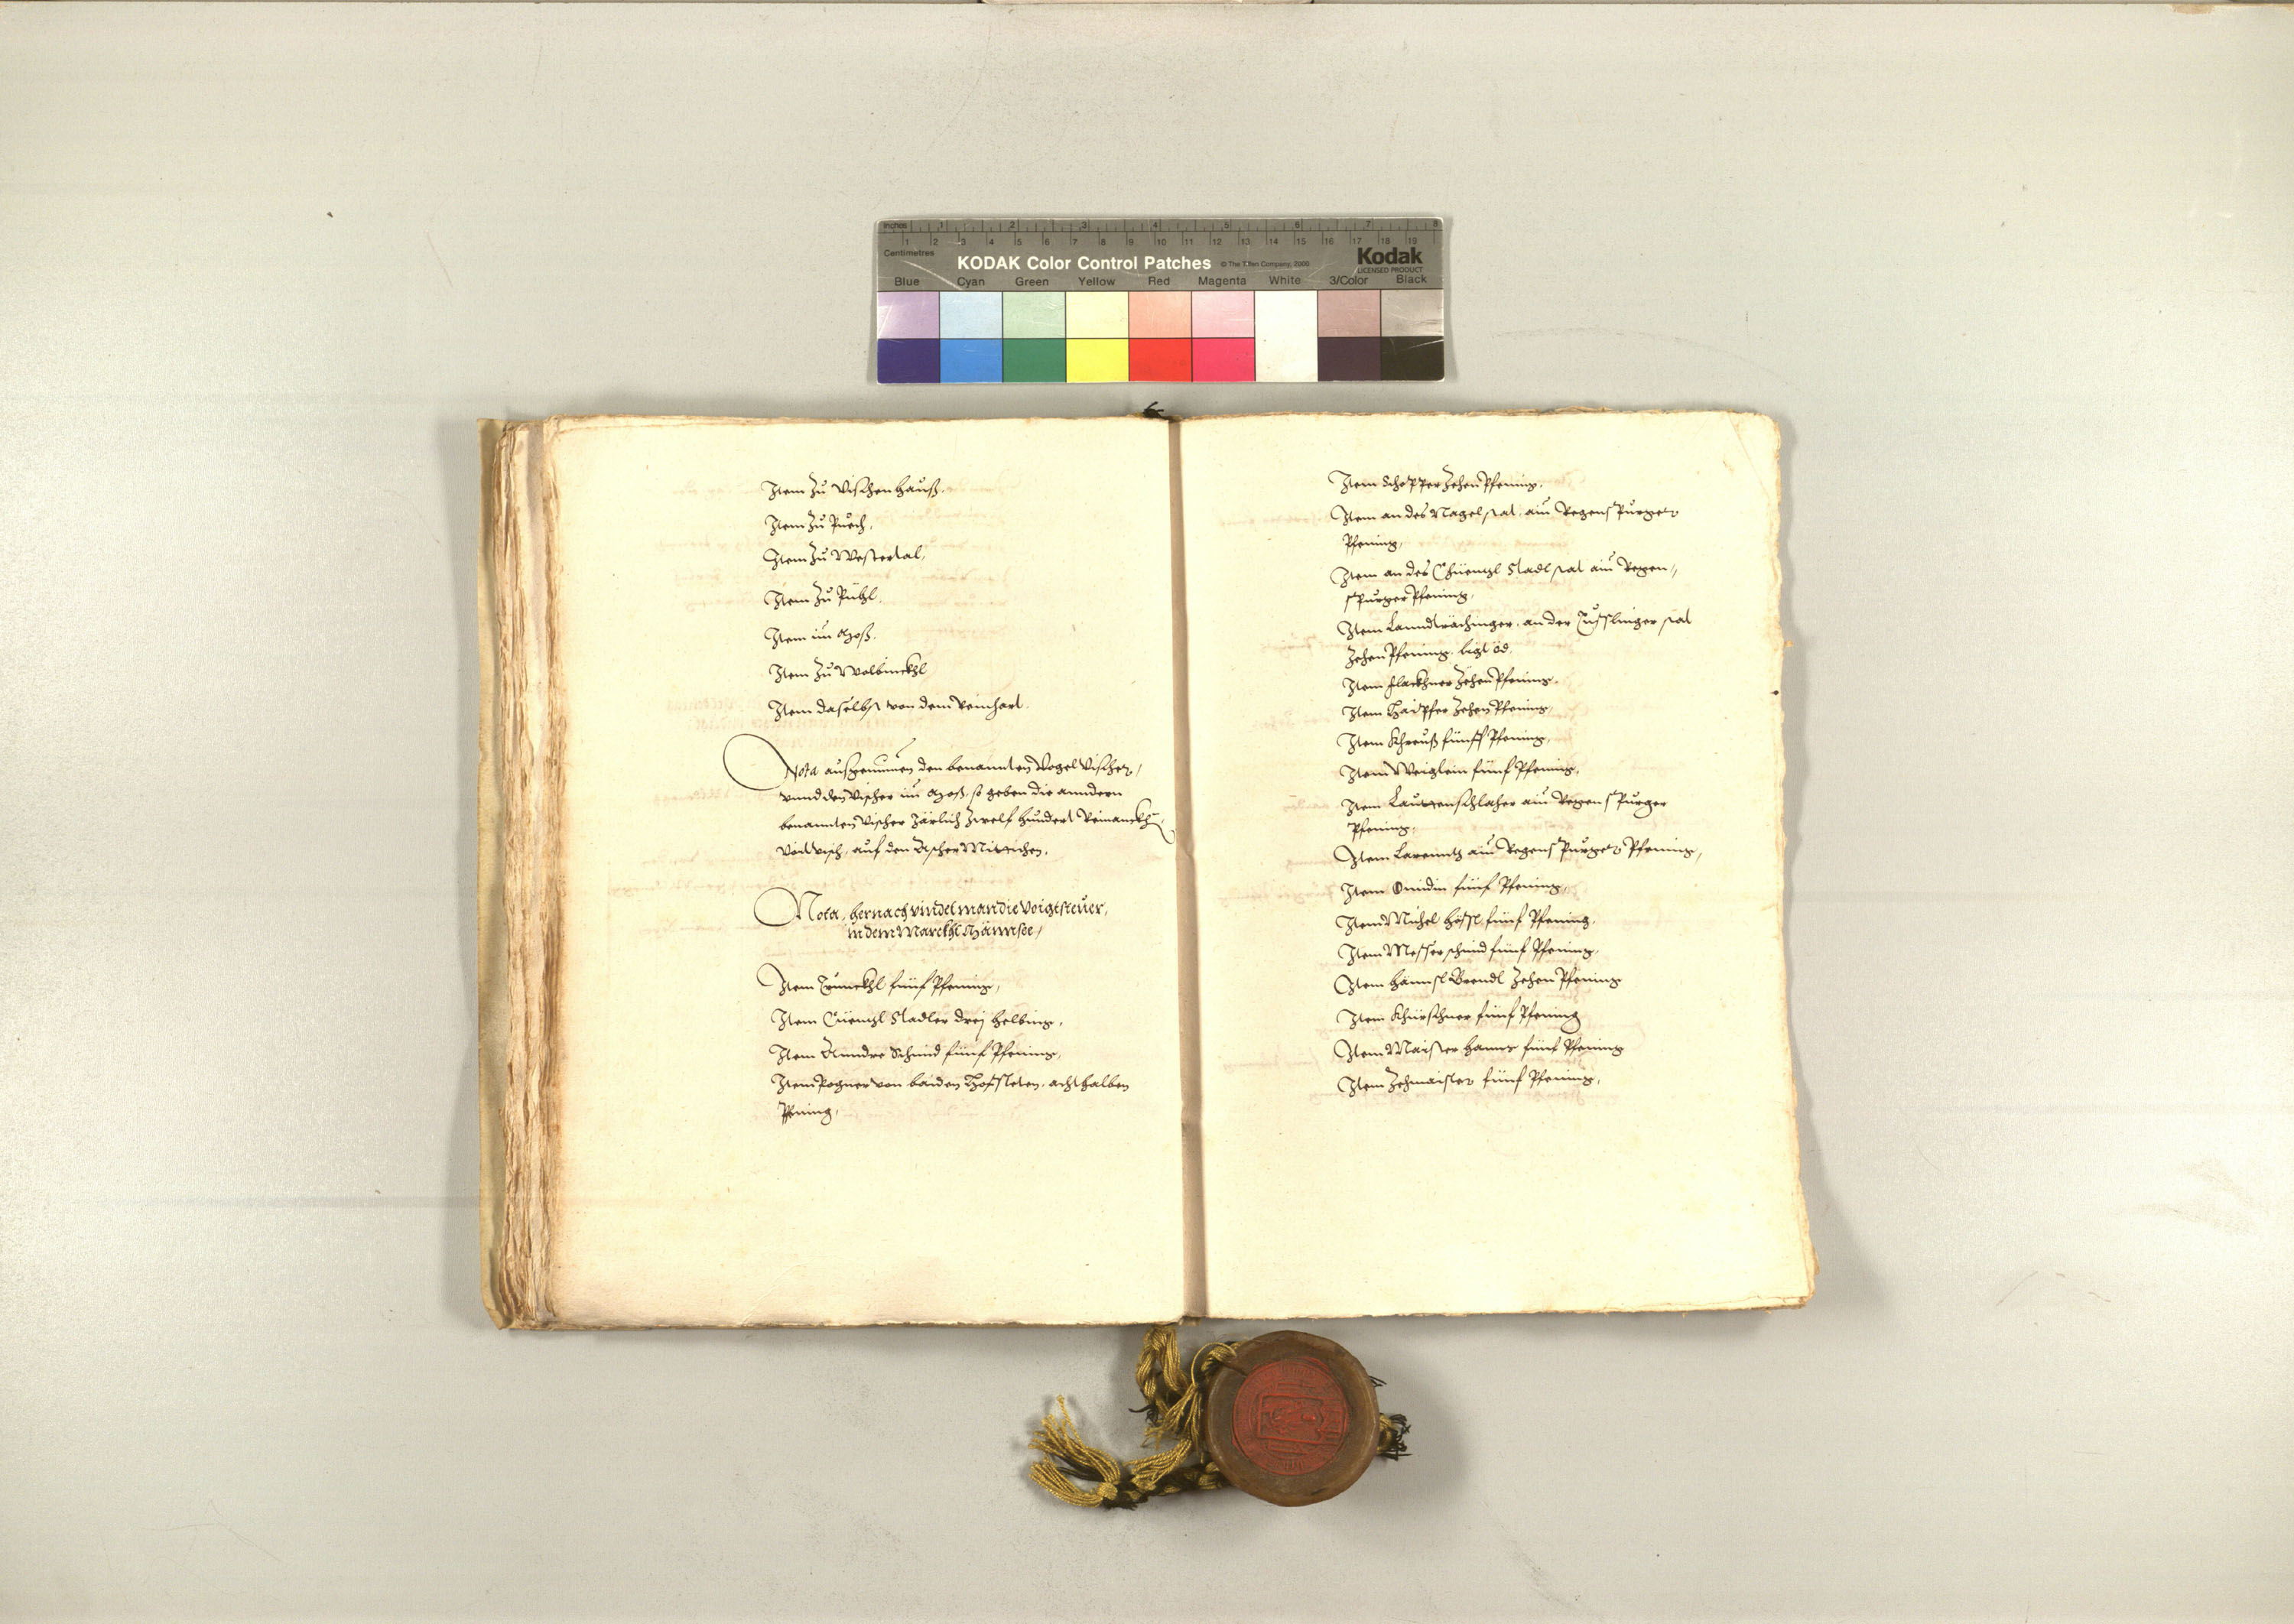 Inches 1 2 3 4 5 6 7 8
1 2 3 4 5 6 7 8 9 10 11 12 13 14 15 16 17 18 19
Centimetres
KODAK Color Control Patches © The Tiffen Company, 2000 Kodak
LICENSED PRODUCT
Blue Cyan Green Yellow Red Magenta White 3/Color Black
Item zu Vischenhauß.
Item zu Puech,
Item zu Westertal,
Item zu Pühl.
Item im Moß.
Item zu
Item daselbst von dem Reinhart.
Nota ausgenumen den benannten Vogel Vischer,
vnnd den Vischer im Moß, so geben die anndern
benannten Vischer Järlich Zwelf hundert Reinanckh
auf den Ascher Mitichen.
Nota, hernach vindet man die Voigtsteuer,
in dem Marckht Männsee,
Item fünf Pfening,
Item Cüentzl Stadler drej helbing,
Item Anndre Schmid fünf Pfening,
Item Pogner von baiden Hofsteten, acht halben
Pfening,
Item Schopper Zehen Pfening,
Item an des Nagel stat, ain Regenspurger
Pfening,
Item an des Chüentzl Stadl stat ain Regen//
spurger Pfening,
Item Lanndtrachinger, an der stat
Zehen Pfening, ligt öd.
Item Flackhner Zehen Pfening,
Item Zehen Pfening,
Item Khreuß fünff Pfening,
Item Weiglein fünf Pfening,
Item Lauttenschlaher ain Regenspurger
Pfening,
Item Larenntz ain Regenspurger Pfening,
Item fünf Pfening,
Item Michel Hössl fünf Pfening,
Item Messerschmid fünf Pfening,
Item Hännsl Brendl Zehen Pfening
Item Khürschner fünf Pfening
Item Maister Hanns fünf Pfening
Item Zehmaister fünf Pfening,